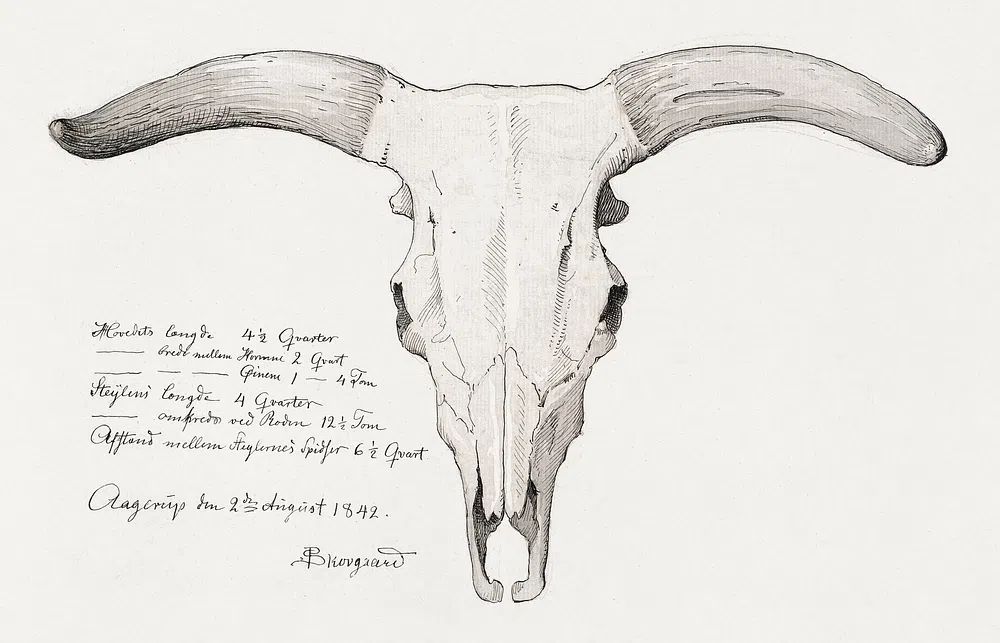 Hovedets længde 4 1/2 Qvarter
—— bredd mellem Hornene 2 Qvart
—— — —— Öinene 1 — 4 Tom
længde 4 Qvarter
—— omkreds ved Roden 12 1/2 Tom
Afstand mellem Spidser 6 1/2 Qvart
Aagerup den 2den August 1842.
Skovgaard